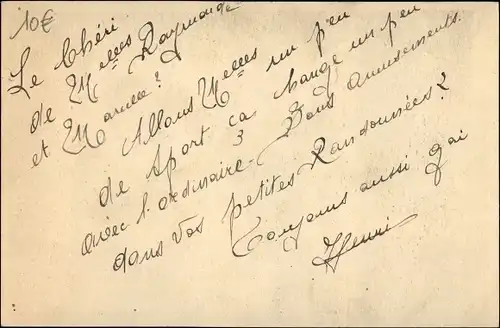 10€
Le Chéri
de Melles Raymonde
et Marcelle?
Allons Melles un p'eu
de sport ça change un p'eu
avec l'ordinaire - Bons amusements.
dans vos petites Randonnées?
Toujours aussi gai
Henri